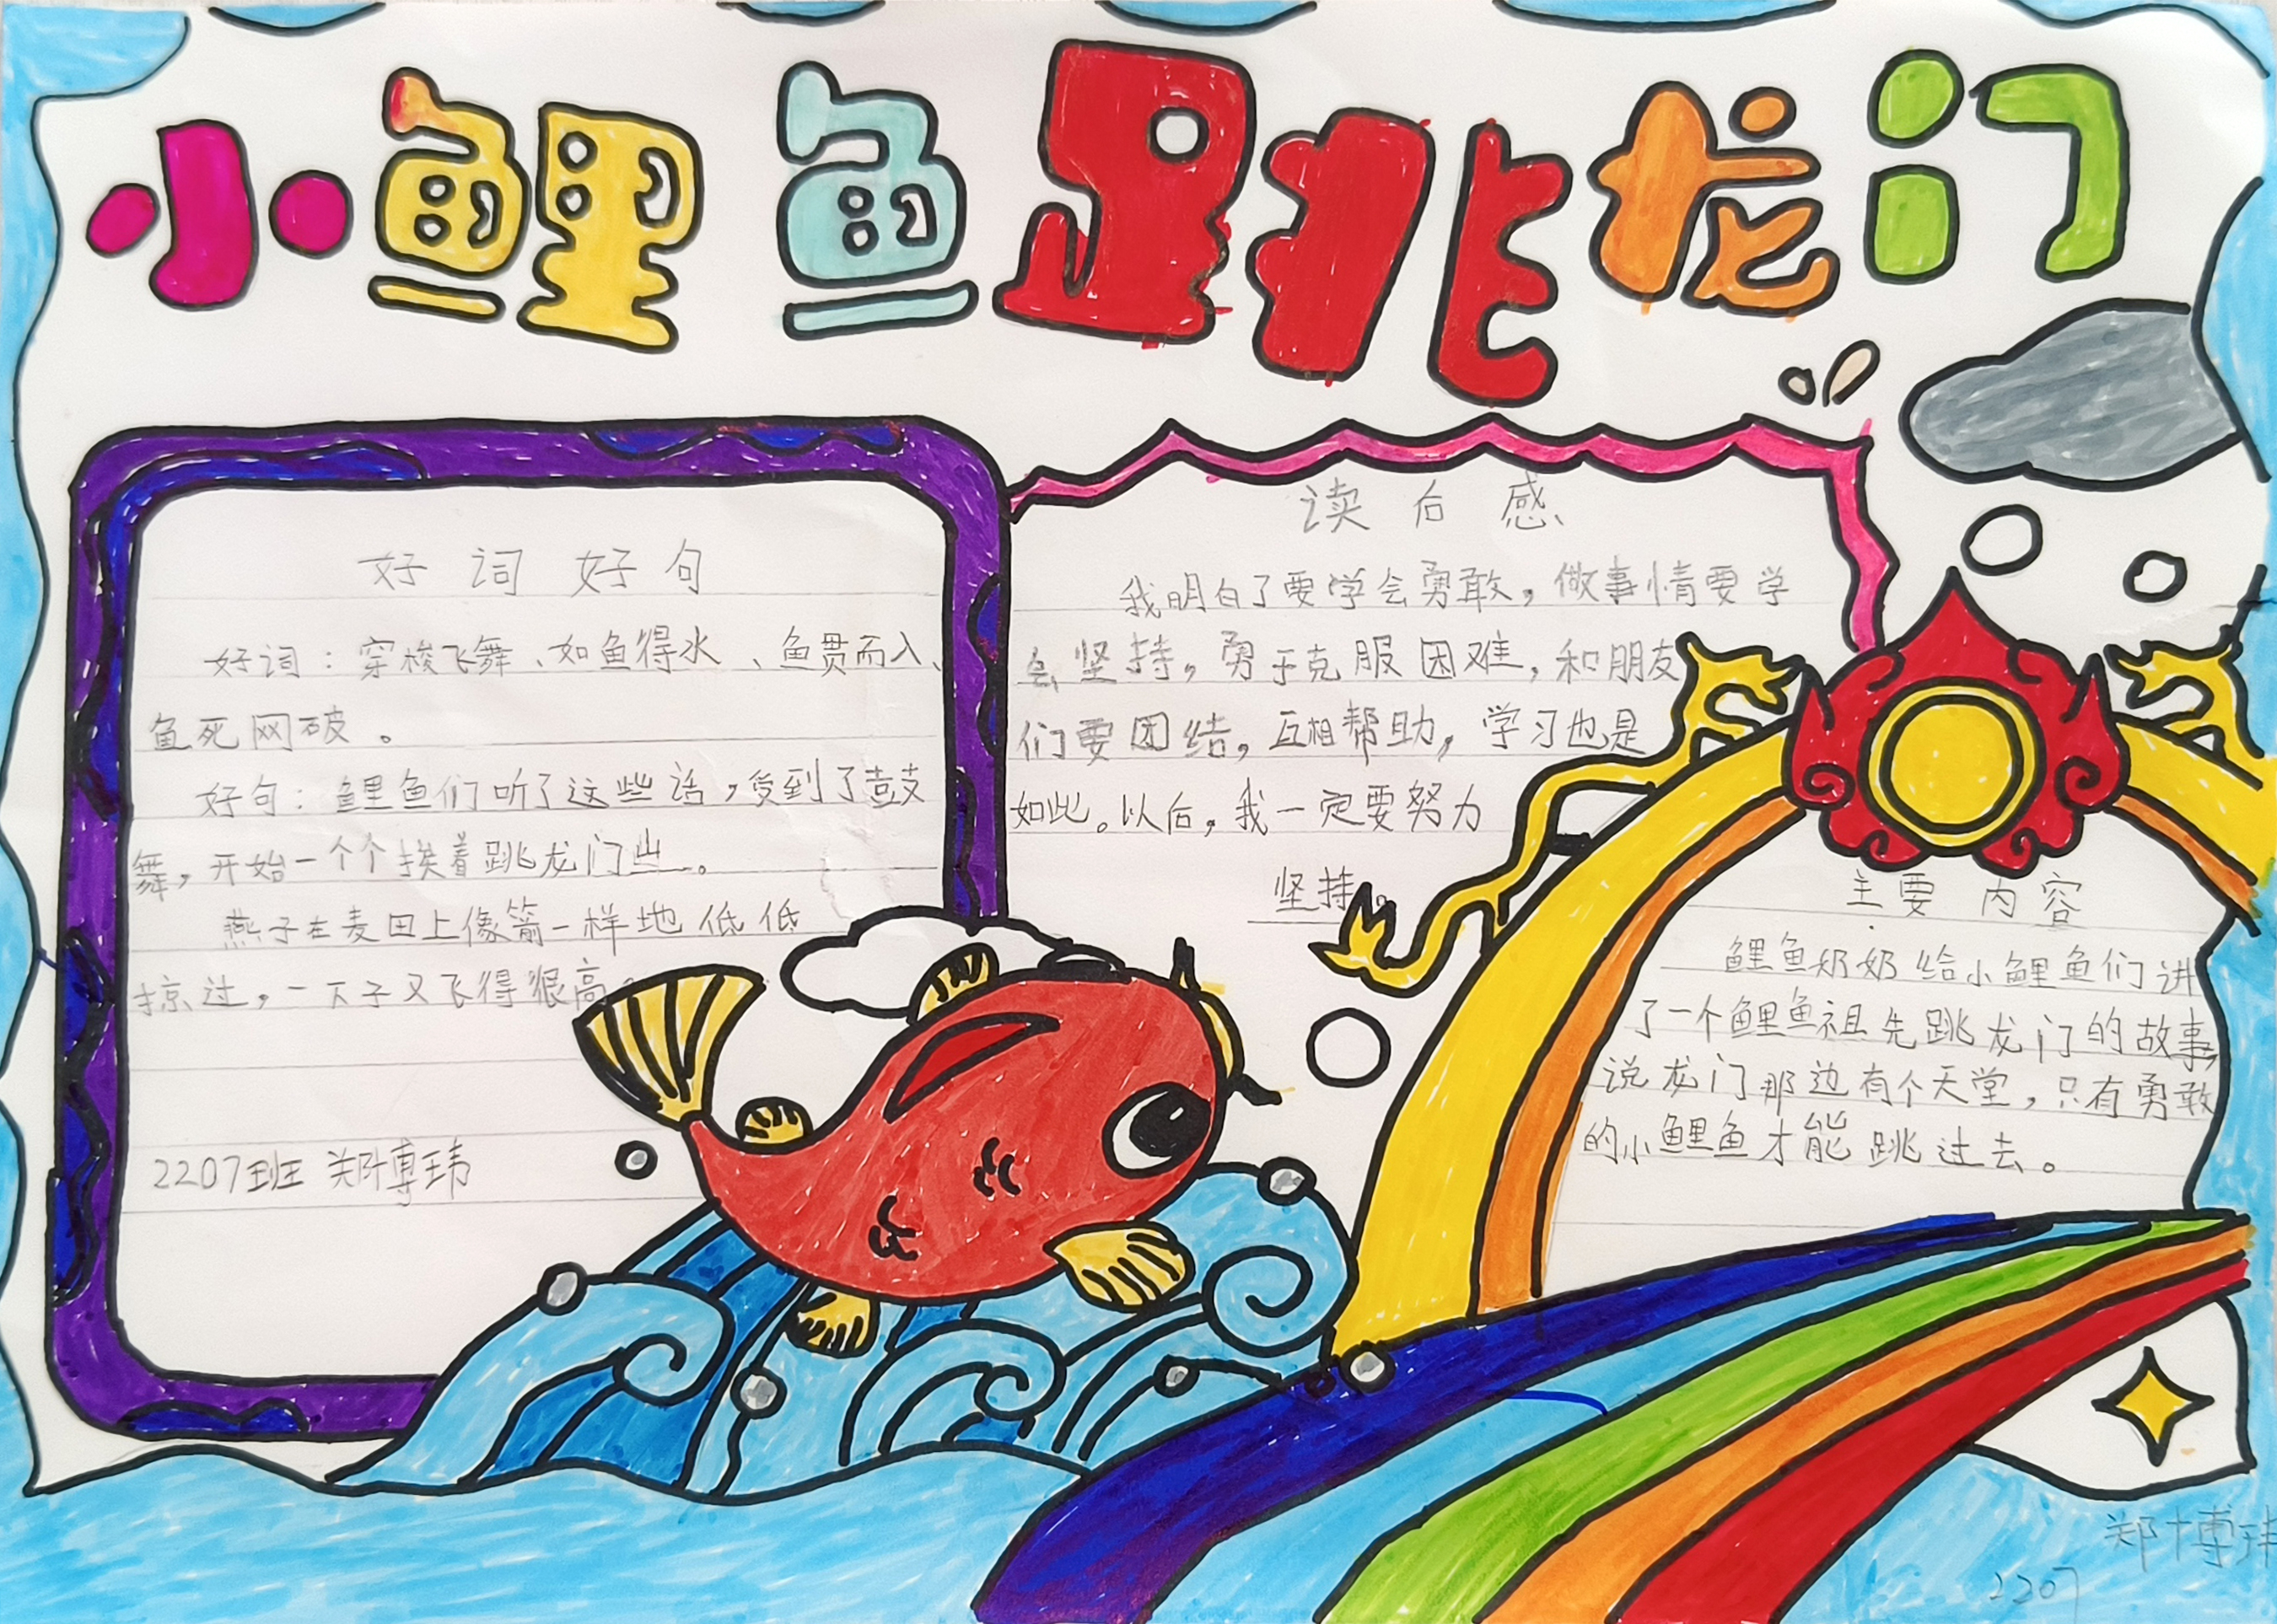 小鲤鱼跳龙门
好词好句
好词：穿梭飞舞、如鱼得水、鱼贯而入、
鱼死网破。
好句：鲤鱼们听了这些话，受到了鼓
舞，开始一个个挨着跳龙门山。
燕子在麦田上像箭一样地低低
掠过，一下子又飞得很高。
2207班 郑博玮
读后感
我明白了要学会勇敢，做事情要学
会坚持，勇于克服困难，和朋友
们要团结，互相帮助，学习也是
如此。以后，我一定要努力
坚持。
主要内容
鲤鱼奶奶给小鲤鱼们讲
了一个鲤鱼祖先跳龙门的故事，
说龙门那边有个天堂，只有勇敢
的小鲤鱼才能跳过去。
郑博玮
2207